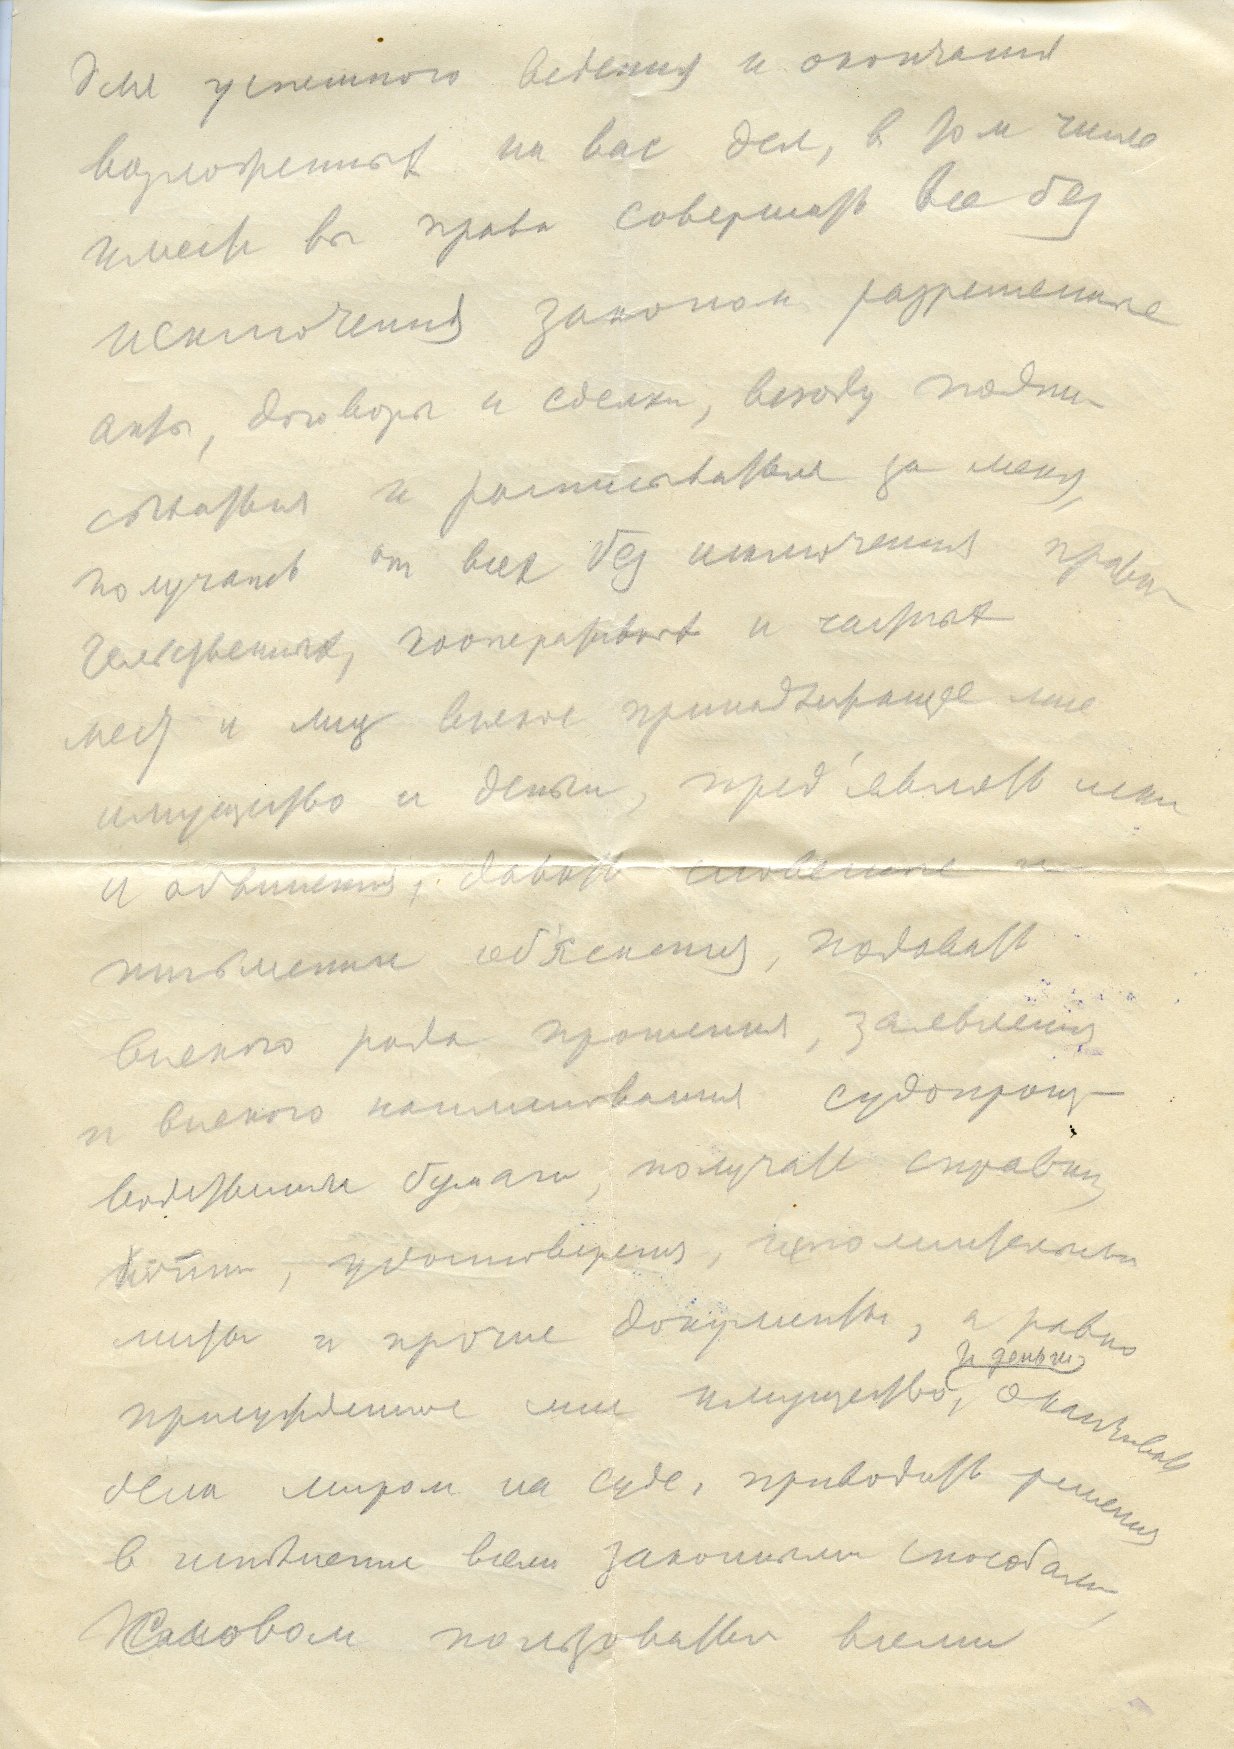 Для успешного ведения и окончания
возложенных на вас дел, в том числе
имеете вы право совершать все без
исключения законом разрешенные
акты, договоры и сделки, всюду подпи-
сываться и расписываться за меня,
получать от всех без исключения прави-
тельственных, кооперативных и частных
мест и лиц всякое принадлежащее мне
имущество и деньги, пред'являть иски
и обвинения, давать словесные и
письменные об'яснения, подавать
всякого рода прошения, заявления
и всякого наименования судопроиз-
водственные бумаги, получать справки,
копии, удостоверения, исполнительные
листы и прочие документы, а равно
присужденное мне имущество, и деньги, оканчивать
дела миром на суде, приводить решения
в исполнение всеми законными способами,
словом пользоваться всеми